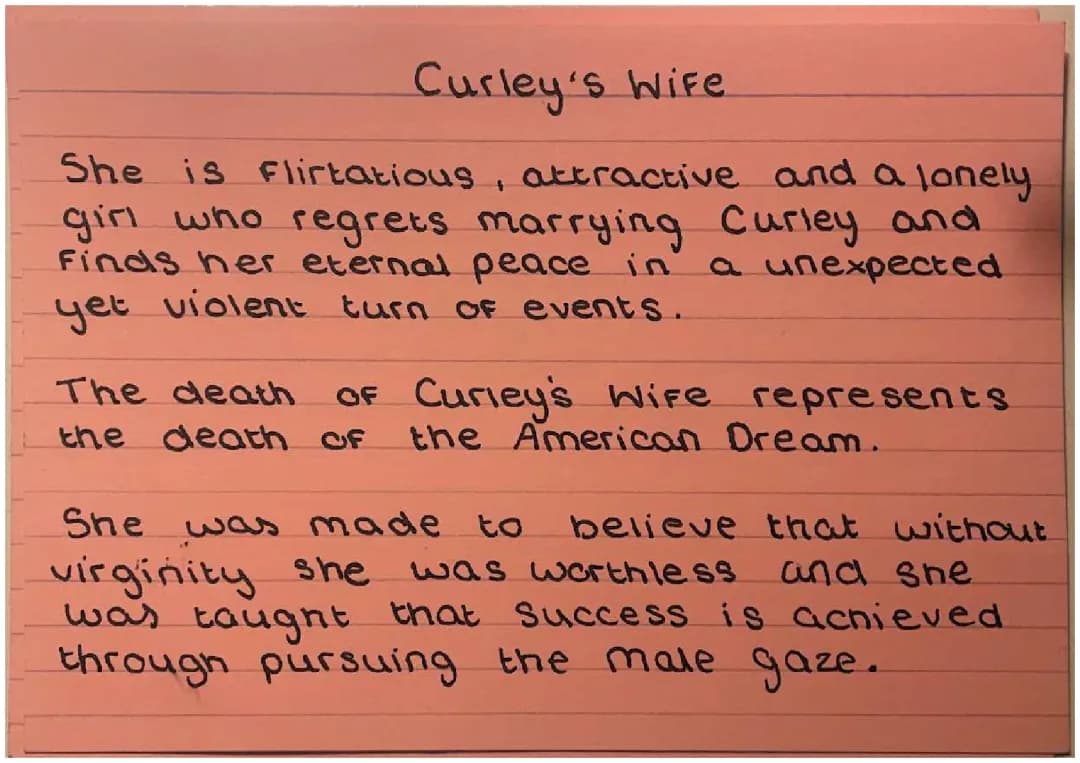 Curley's Wife
She is flirtatious, attractive and a lonely
girl who regrets marrying Curley and
finds her eternal peace in a unexpected
yet violent turn of events.
The death of Curley's Wife represents
the death of the American Dream.
She was made to believe that without
virginity she was worthless and she
was taught that success is achieved
through pursuing the male gaze.